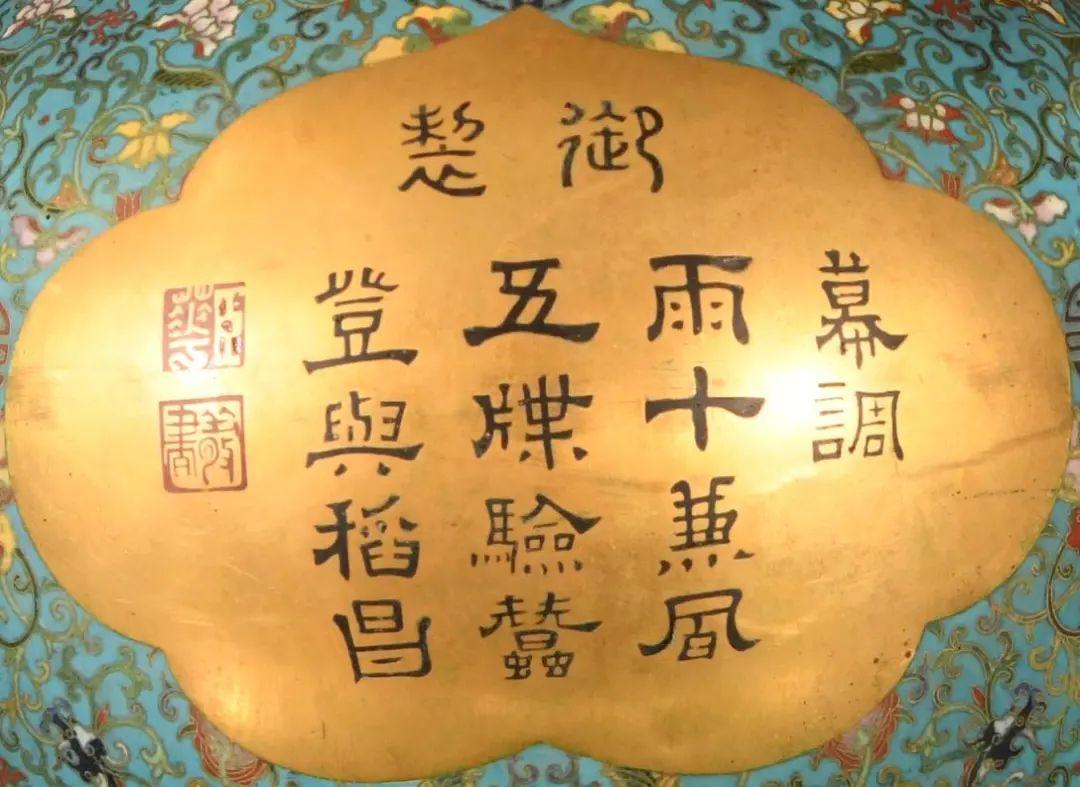 御製
幕調
雨十兼風
五牒驗蠶
登與稻昌
敬書